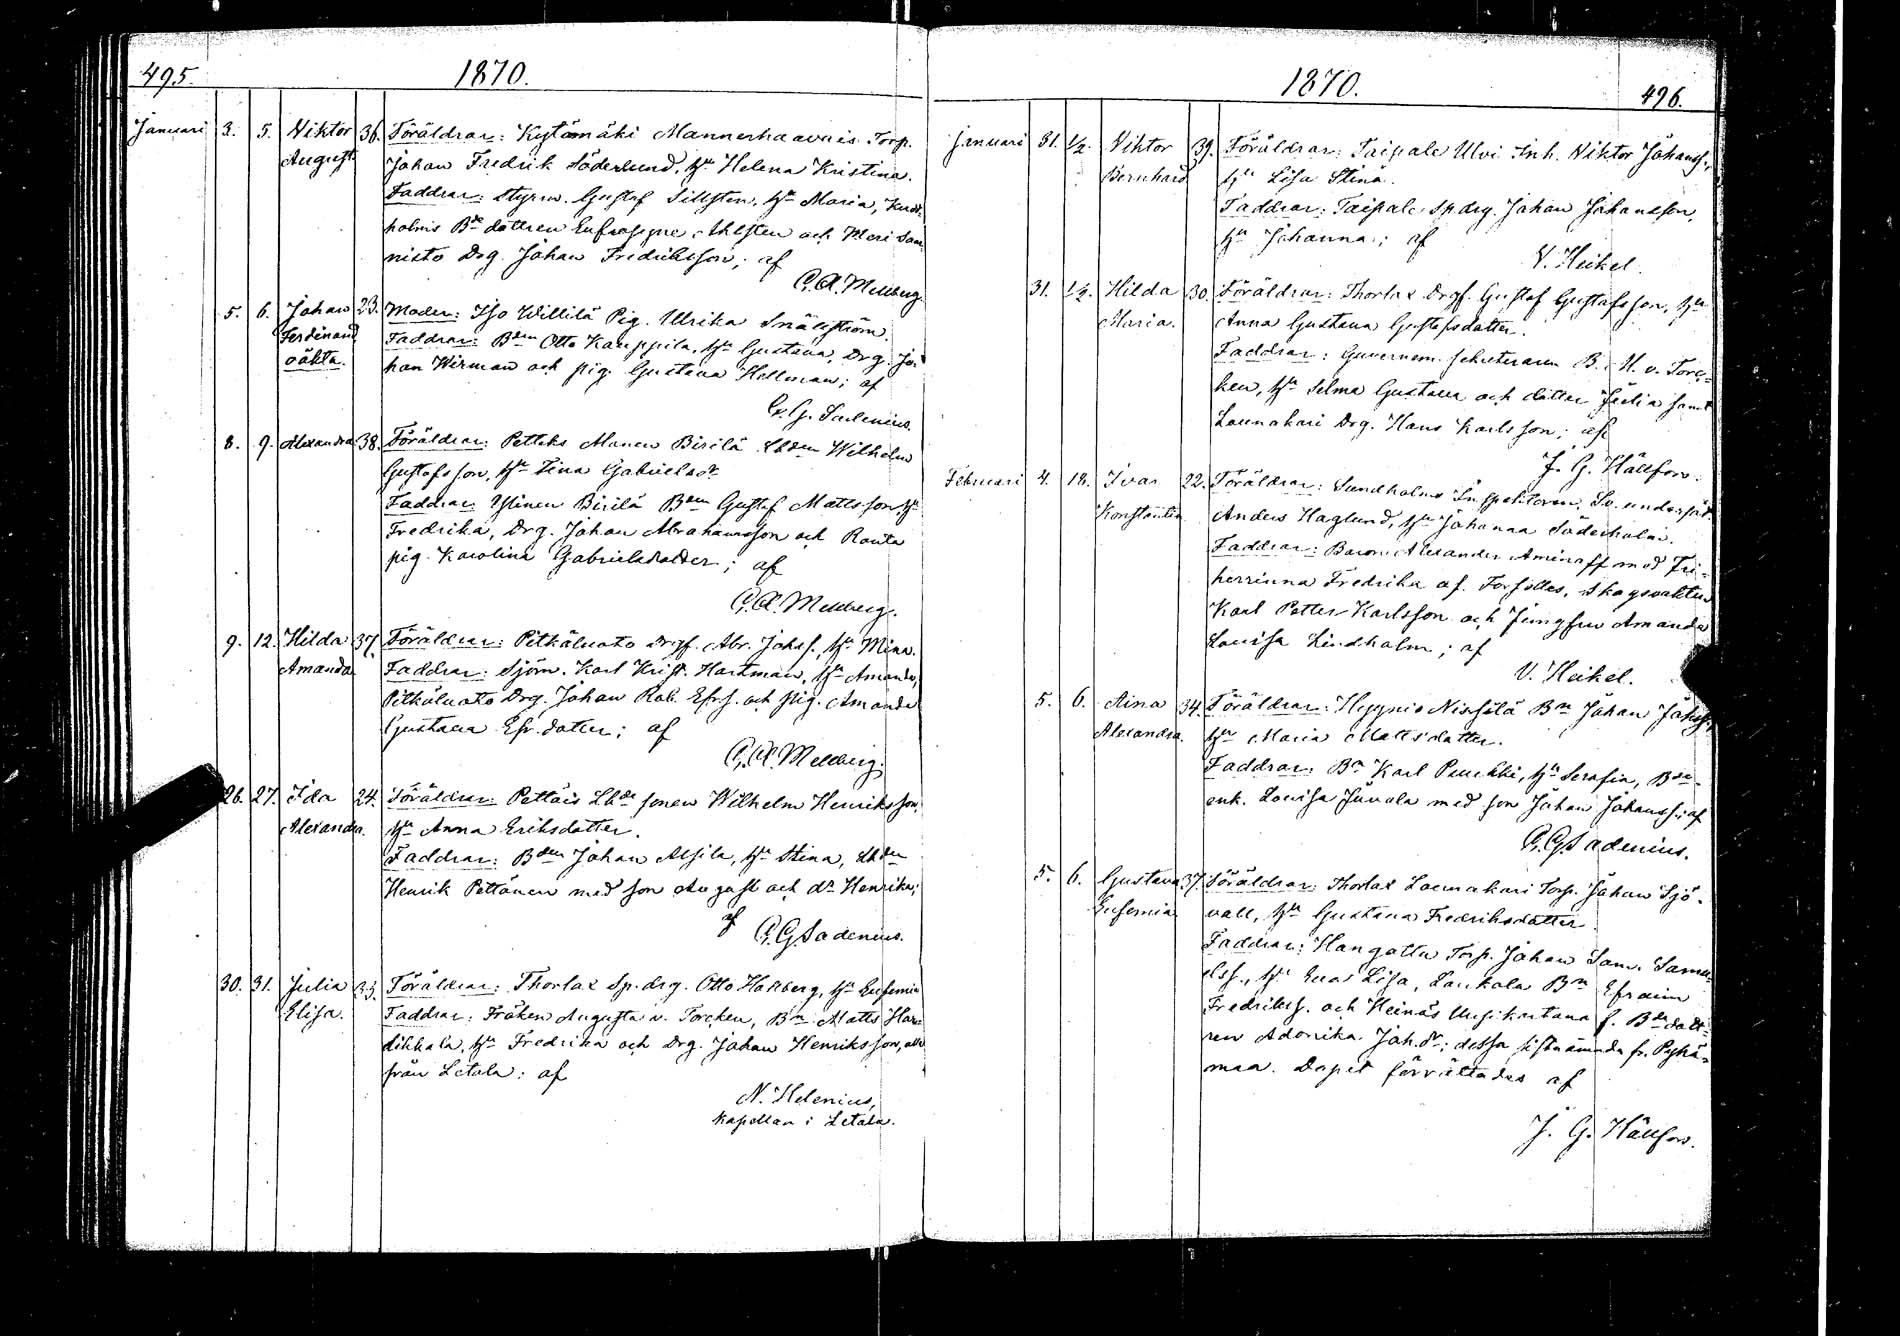 495.
1870.
Januari 3. 5. Viktor 36. Föräldrar: Kytämäki Mannerhaavois Torp.
August Johan Fredrik Söderlund, hu Helena Kristina.
Faddrar: Styrm. Gustaf Sillsten, hu Maria,
holms Bde dottren Eufrosyne Ahlsten och
nisto Drg. Johan Fredriksson; af
C. A. Mellberg.
5. 6. Johan 23. Moder: Iso Willilä Pig. Ulrika Snällström.
Ferdinand Faddrar: Bden Otto Kauppila, hu Gustava, Drg. Jo-
oäkta. han Wirman och pig. Gustava Hellman; af
G. G. Sadenius.
8. 9. Alexandra 38. Föräldrar: Petteks Manen Birilä Lbden Wilhelm
Gustafsson, hu Stina Gabrielsdr
Faddrar: Ylinen Birilä Bden Gustaf Mattsson, hu
Fredrika, Drg. Johan Abrahamsson och Ranta
pig. Karolina Gabrielsdotter; af
C. A. Mellberg.
9. 12. Hilda 37. Föräldrar: Pitkäluoto Drgf. Abr. Johss. hu Mina.
Amanda Faddrar: Sjöm. Karl Krist. Hartman, hu Amanda,
Pitkäluoto Drg. Johan Rob. Efrs. och pig. Amanda
Gustava Efr. dotter; af
C. A. Mellberg.
26. 27. Ida 24. Föräldrar: Pettäis Lbde sonen Wilhelm Henriksson,
Alexandra. hu Anna Eriksdotter.
Faddrar: Bden Johan Alsila, hu Stina, Lbden
Henrik Pettänen med son August och dr Henrika;
af G. G. Sadenius.
30. 31. Julia 33. Föräldrar: Thorlax Sp. drg. Otto Hallberg, hu Eufemia
Elisa. Faddrar: Fröken Augusta v. Torcken, Bn Matts Har-
dikkala, hu Fredrika och Drg. Johan Henriksson, alla
från Letala; af
N. Helenius,
Kapellan i Letala.
1870.
496.
Januari 31. 1/2. Viktor 39. Föräldrar: Taipale Ulvi Inh. Viktor Johanss.,
Bernhard hu Lisa Stina.
Faddrar: Taipale Sp. drg. Johan Johansson,
hu Johanna; af
V. Heikel.
31. 1/2. Hilda 30. Föräldrar: Thorlax Drgf. Gustaf Gustafsson, hu
Maria. Anna Gustava Gustafsdotter.
Faddrar: Guvernem. sekreteraren B. H. v. Torc-
ken, hu Selma Gustava och dotter Julia samt
Lounakari Drg. Hans Karlsson; af
J. G. Hällfors.
Februari 4. 18. Ivar 22. Föräldrar: Sundholms Inspektoren, Sv. undersåt.
Konstantin Anders Haglund, hu Johanna Söderholm.
Faddrar: Baron Alexander Aminoff med Fri-
herrinna Fredrika af. Forselles, Skogsvakten
Karl Petter Karlsson och Jungfru Amanda
Lovisa Lindholm; af
V. Heikel.
5. 6. Aina 34. Föräldrar: Hyynis Bn Johan Johss.,
Alexandra. hu Maria Mattsdotter.
Faddrar: Bn Karl Penikki, hu Serafia, Bde
enk. Lovisa Juvala med son Johan Johanss.; af
G. G. Sadenius.
5. 6. Gustava 37. Föräldrar: Thorlax Lounakari Torp. Johan Sjö-
Eufemia vall, hu Gustava Fredriksdotter.
Faddrar: Hangattu Torp. Johan Sam. Samu-
elss., hu Eva Lisa, Laukola Bn Efraim
Fredrikss. och Heinäs Uusikartano f. Bdedott-
ren Adorika Joh. dr; dessa sistnämnda fr. Pyhä-
maa. Dopet förrättades af
J. G. Hällfors.